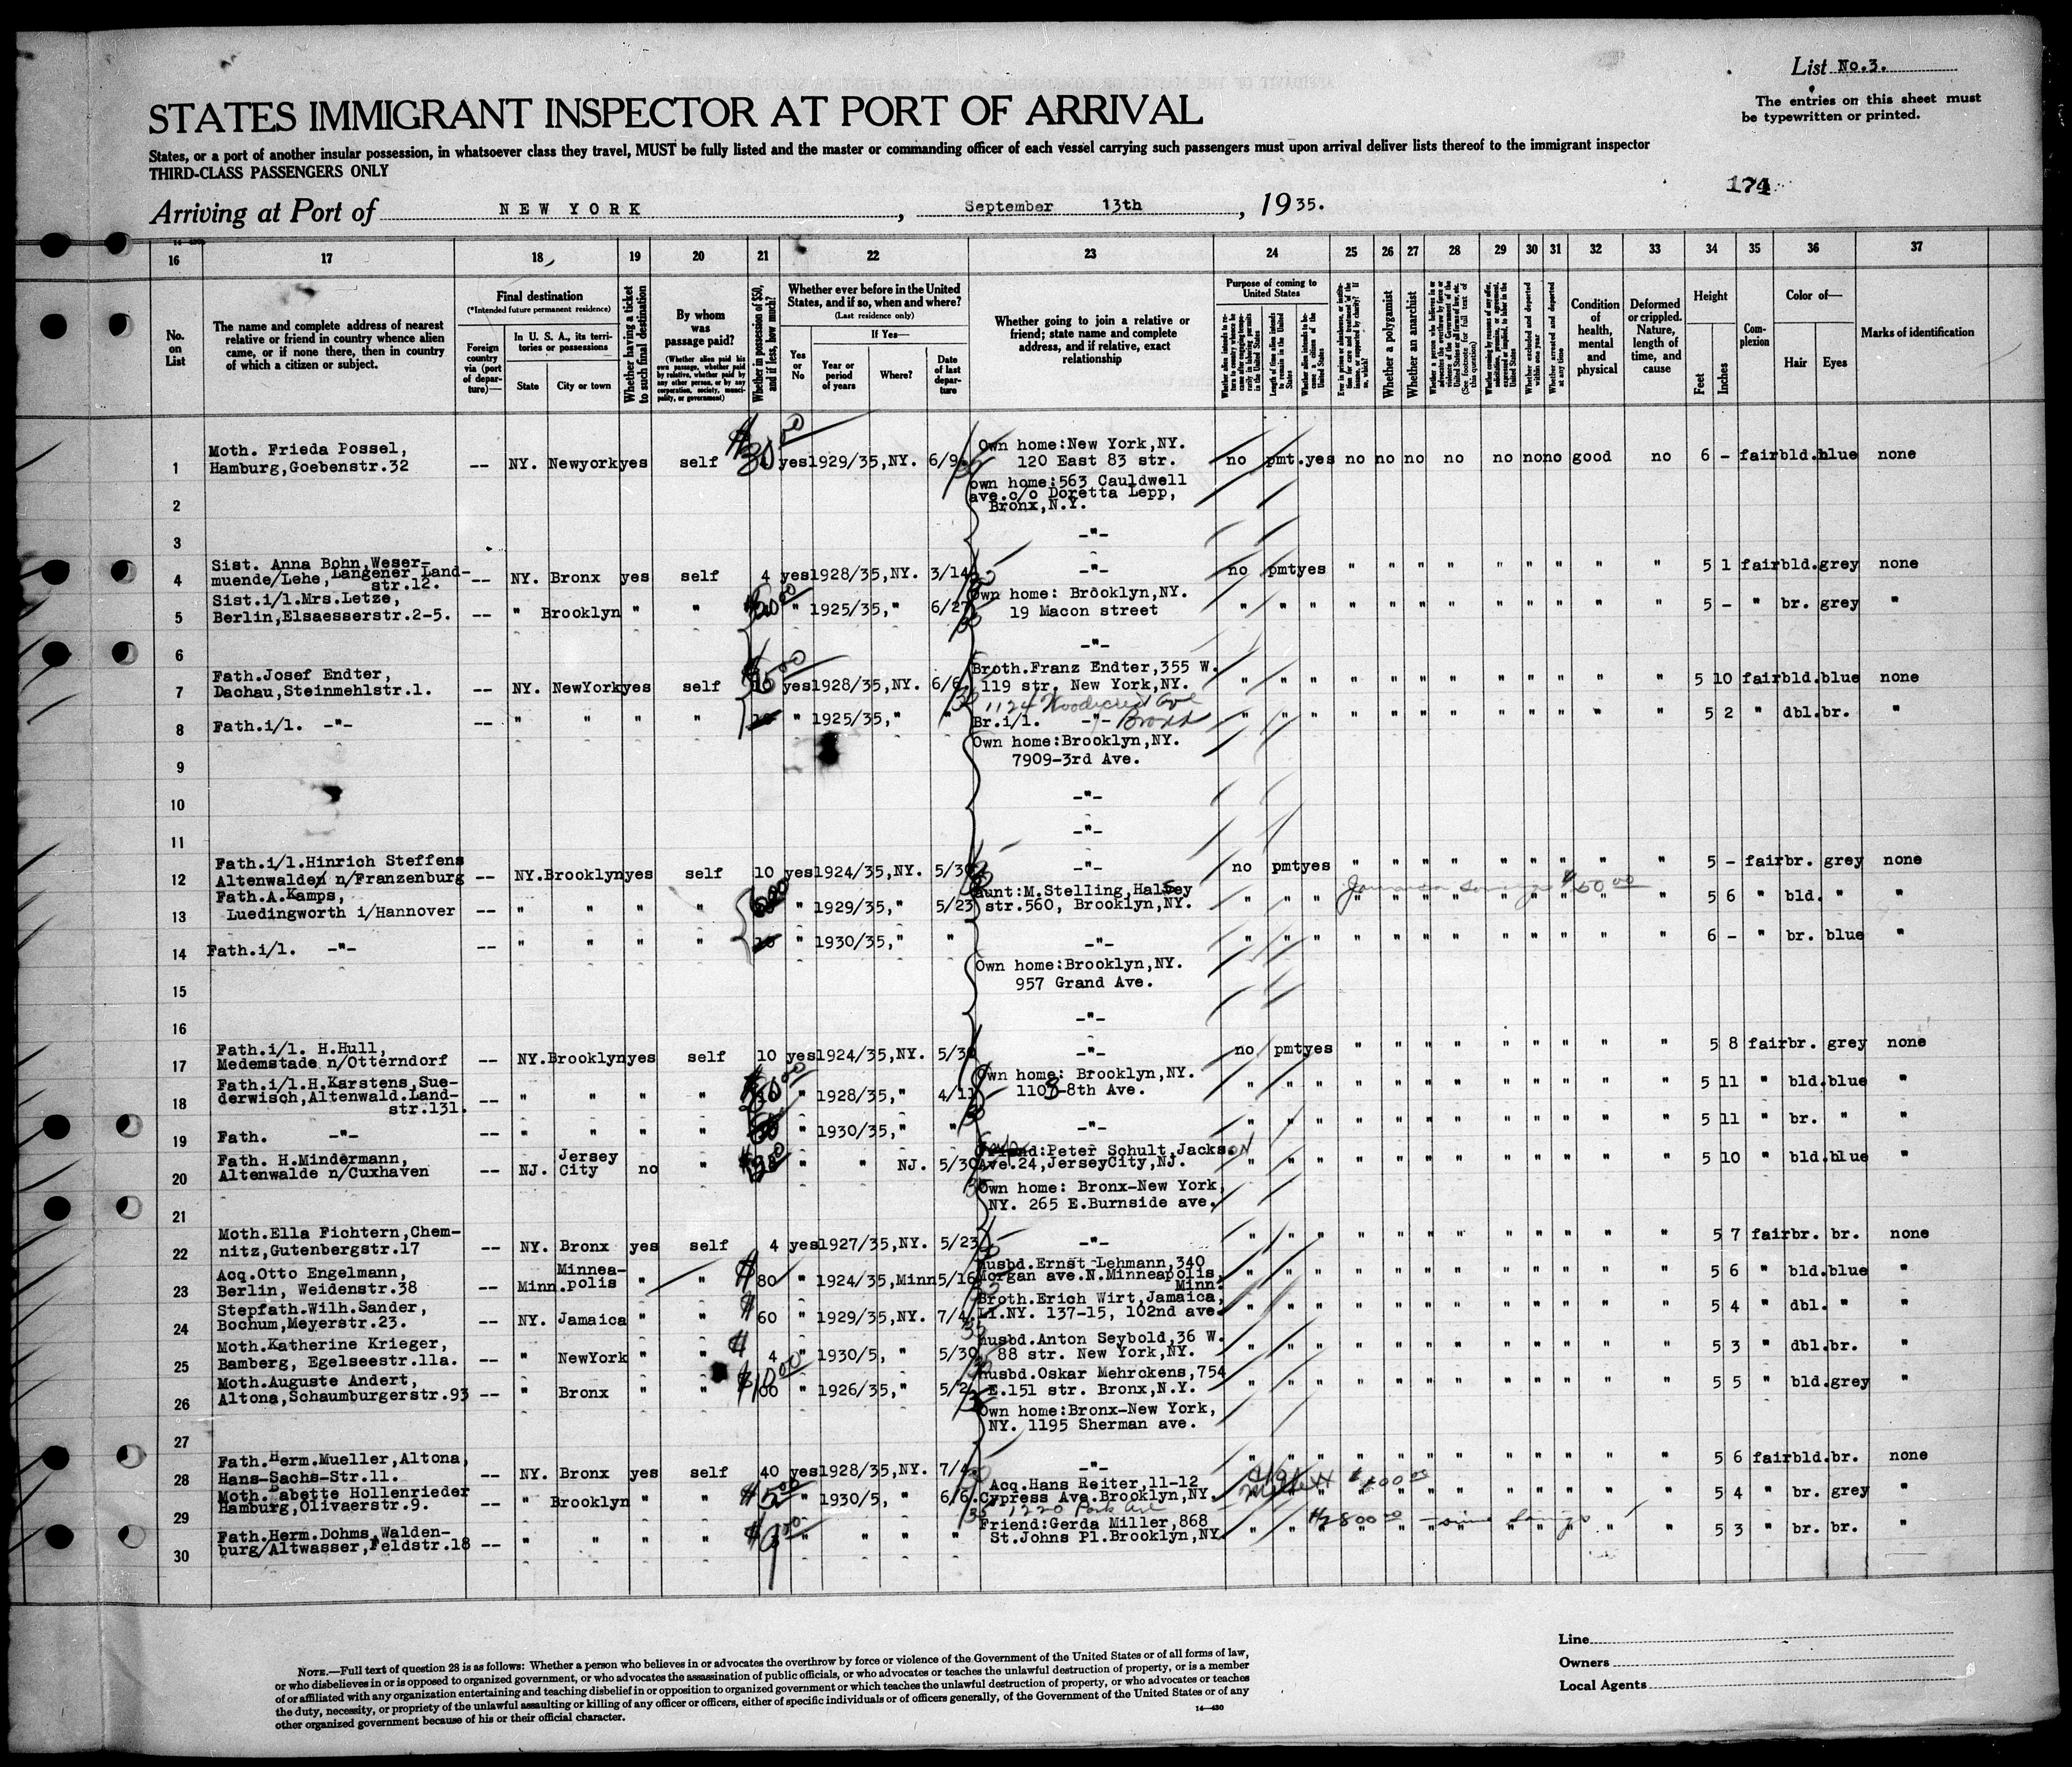 List No.3.
The entries on this sheet must
be typewritten or printed.
STATES IMMIGRANT INSPECTOR AT PORT OF ARRIVAL
States, or a port of another insular possession, in whatsoever class they travel, MUST be fully listed and the master or commanding officer of each vessel carrying such passengers must upon arrival deliver lists thereof to the immigrant inspector
THIRD-CLASS PASSENGERS ONLY
174
Arriving at Port of NEW YORK, September 13th, 1935.
16 17 18 19 20 21 22 23 24 25 26 27 28 29 30 31 32 33 34 35 36 37
No. on List
The name and complete address of nearest relative or friend in country whence alien came, or if none there, then in country of which a citizen or subject.
Final destination
(*Intended future permanent residence)
Foreign country via (port of departure)—
In U. S. A., its territories or possessions
State City or town
Whether having a ticket to such final destination
By whom was passage paid?
(Whether alien paid his own passage, whether paid by relative, whether paid by any other person, or by any corporation, society, municipality, or government)
Whether in possession of $50, and if less, how much?
Whether ever before in the United States, and if so, when and where?
(Last residence only)
Yes or No
If Yes—
Year or period of years
Where?
Date of last departure
Whether going to join a relative or friend; state name and complete address, and if relative, exact relationship
Purpose of coming to United States
Whether a polygamist
Whether an anarchist
Condition of health, mental and physical
Deformed or crippled. Nature, length of time, and cause
Height
Feet Inches
Complexion
Color of—
Hair Eyes
Marks of identification
1 Moth. Frieda Possel, Hamburg,Goebenstr.32 -- NY. Newyork yes self yes 1929/35,NY. 6/9 Own home:New York,NY. 120 East 83 str. no pmt. yes no no no no no no no good no 6 - fair bld. blue none
2 own home:563 Cauldwell ave.c/o Doretta Lepp, Bronx,N.Y.
3 -"-
4 Sist. Anna Bohn,Weser-muende/Lehe, Langener Land-str.12. -- NY. Bronx yes self 4 yes 1928/35,NY. 3/14 -"- no pmt yes " " " " " " " " " 5 1 fair bld. grey none
5 Sist.i/l.Mrs.Letze, Berlin,Elsaesserstr.2-5. -- " Brooklyn " " " 1925/35, " 6/27 Own home: Brooklyn,NY. 19 Macon street " " " " " " " " " " " " 5 - " br. grey "
6 -"-
7 Fath.Josef Endter, Dachau,Steinmehlstr.1. -- NY. NewYork yes self yes 1928/35,NY. 6/6 Broth.Franz Endter,355 W. 119 str. New York,NY. " " " " " " " " " " " " 5 10 fair bld. blue none
1124 Woodycrest Ave Bronx
8 Fath.i/l. -"- -- " " " " " 1925/35, " " Br.i/l. -"- " " " " " " " " " " " " 5 2 " dbl. br. "
9 Own home:Brooklyn,NY. 7909-3rd Ave.
10 -"-
11 -"-
12 Fath.i/l.Hinrich Steffens Altenwalden n/Franzenburg -- NY. Brooklyn yes self 10 yes 1924/35,NY. 5/30 -"- no pmt yes " " " " " " " " " 5 - fair br. grey none
13 Fath.A.Kamps, Luedingworth i/Hannover -- " " " " " 1929/35, " 5/23 Aunt:M.Stelling,Halsey str.560, Brooklyn,NY. " " " " " " " " " " " " 5 6 " bld. " "
Jamaica Savings $50 00
14 Fath.i/l. -"- -- " " " " " 1930/35, " " -"- " " " " " " " " " " " " 6 - " br. blue "
15 Own home:Brooklyn,NY. 957 Grand Ave.
16 -"-
17 Fath.i/l. H.Hull, Medemstade n/Otterndorf -- NY. Brooklyn yes self 10 yes 1924/35,NY. 5/30 -"- no pmt yes " " " " " " " " " 5 8 fair br. grey none
18 Fath.i/l.H.Karstens,Sue-derwisch,Altenwald.Land-str.131. -- " " " " " 1928/35, " 4/11 Own home: Brooklyn,NY. 1103-8th Ave. " " " " " " " " " " " " 5 11 " bld. blue "
19 Fath. -"- -- " " " " " 1930/35, " " -"- " " " " " " " " " " " " 5 11 " br. " "
20 Fath. H.Mindermann, Altenwalde n/Cuxhaven -- NJ. Jersey City no " " " NJ. 5/30 Friend:Peter Schult,Jackson Ave.24,JerseyCity,NJ. " " " " " " " " " " " " 5 10 " bld. blue "
21 Own home: Bronx-New York, NY. 265 E.Burnside ave.
22 Moth.Ella Fichtern,Chem-nitz,Gutenbergstr.17 -- NY. Bronx yes self 4 yes 1927/35,NY. 5/23 -"- " " " " " " " " " " " " 5 7 fair br. br. none
23 Acq.Otto Engelmann, Berlin, Weidenstr.38 -- Minn. Minnea-polis " " $80 " 1924/35,Minn 5/16 husbd.Ernst Lehmann,340 Morgan ave.N.Minneapolis, Minn. " " " " " " " " " " " " 5 6 " bld. blue "
24 Stepfath.Wilh.Sander, Bochum,Meyerstr.23. -- NY. Jamaica " " $60 " 1929/35,NY. 7/4 Broth.Erich Wirt,Jamaica, LI.NY. 137-15, 102nd ave. " " " " " " " " " " " " 5 4 " dbl. " "
25 Moth.Katherine Krieger, Bamberg, Egelseestr.11a. -- " NewYork " " $4 " 1930/5, " 5/30 husbd.Anton Seybold,36 W. 88 str. New York,NY. " " " " " " " " " " " " 5 3 " dbl. br. "
26 Moth.Auguste Andert, Altona,Schaumburgerstr.93 -- " Bronx " " $10 00 " 1926/35, " 5/2 husbd.Oskar Mehrckens,754 E.151 str. Bronx,N.Y. " " " " " " " " " " " " 5 5 " bld. grey "
27 Own home:Bronx-New York, NY. 1195 Sherman ave.
28 Fath.Herm.Mueller,Altona, Hans-Sachs-Str.11. -- NY. Bronx yes self 40 yes 1928/35,NY. 7/4 -"- " " " " " " " " " " " " 5 6 fair bld. br. none
29 Moth.Babette Hollenrieder Hamburg,Olivaerstr.9. -- " Brooklyn " " $5 00 " 1930/5, " 6/6 Acq.Hans Reiter,11-12 Cypress Ave.Brooklyn,NY. " " " " " " " " " " " 5 4 " br. grey "
$100 00
1220 Park Ave
30 Fath.Herm.Dohms,Walden-burg/Altwasser,Feldstr.18 -- " " " " " " " " Friend:Gerda Miller,868 St.Johns Pl.Brooklyn,NY " " " " " " " " " " " " 5 3 " br. br. "
Line
Owners
Local Agents
NOTE.—Full text of question 28 is as follows: Whether a person who believes in or advocates the overthrow by force or violence of the Government of the United States or of all forms of law,
or who disbelieves in or is opposed to organized government, or who advocates the assassination of public officials, or who advocates or teaches the unlawful destruction of property, or is a member
of or affiliated with any organization entertaining and teaching disbelief in or opposition to organized government or which teaches the unlawful destruction of property, or who advocates or teaches
the duty, necessity, or propriety of the unlawful assaulting or killing of any officer or officers, either of specific individuals or of officers generally, of the Government of the United States or of any
other organized government because of his or their official character.
14—430